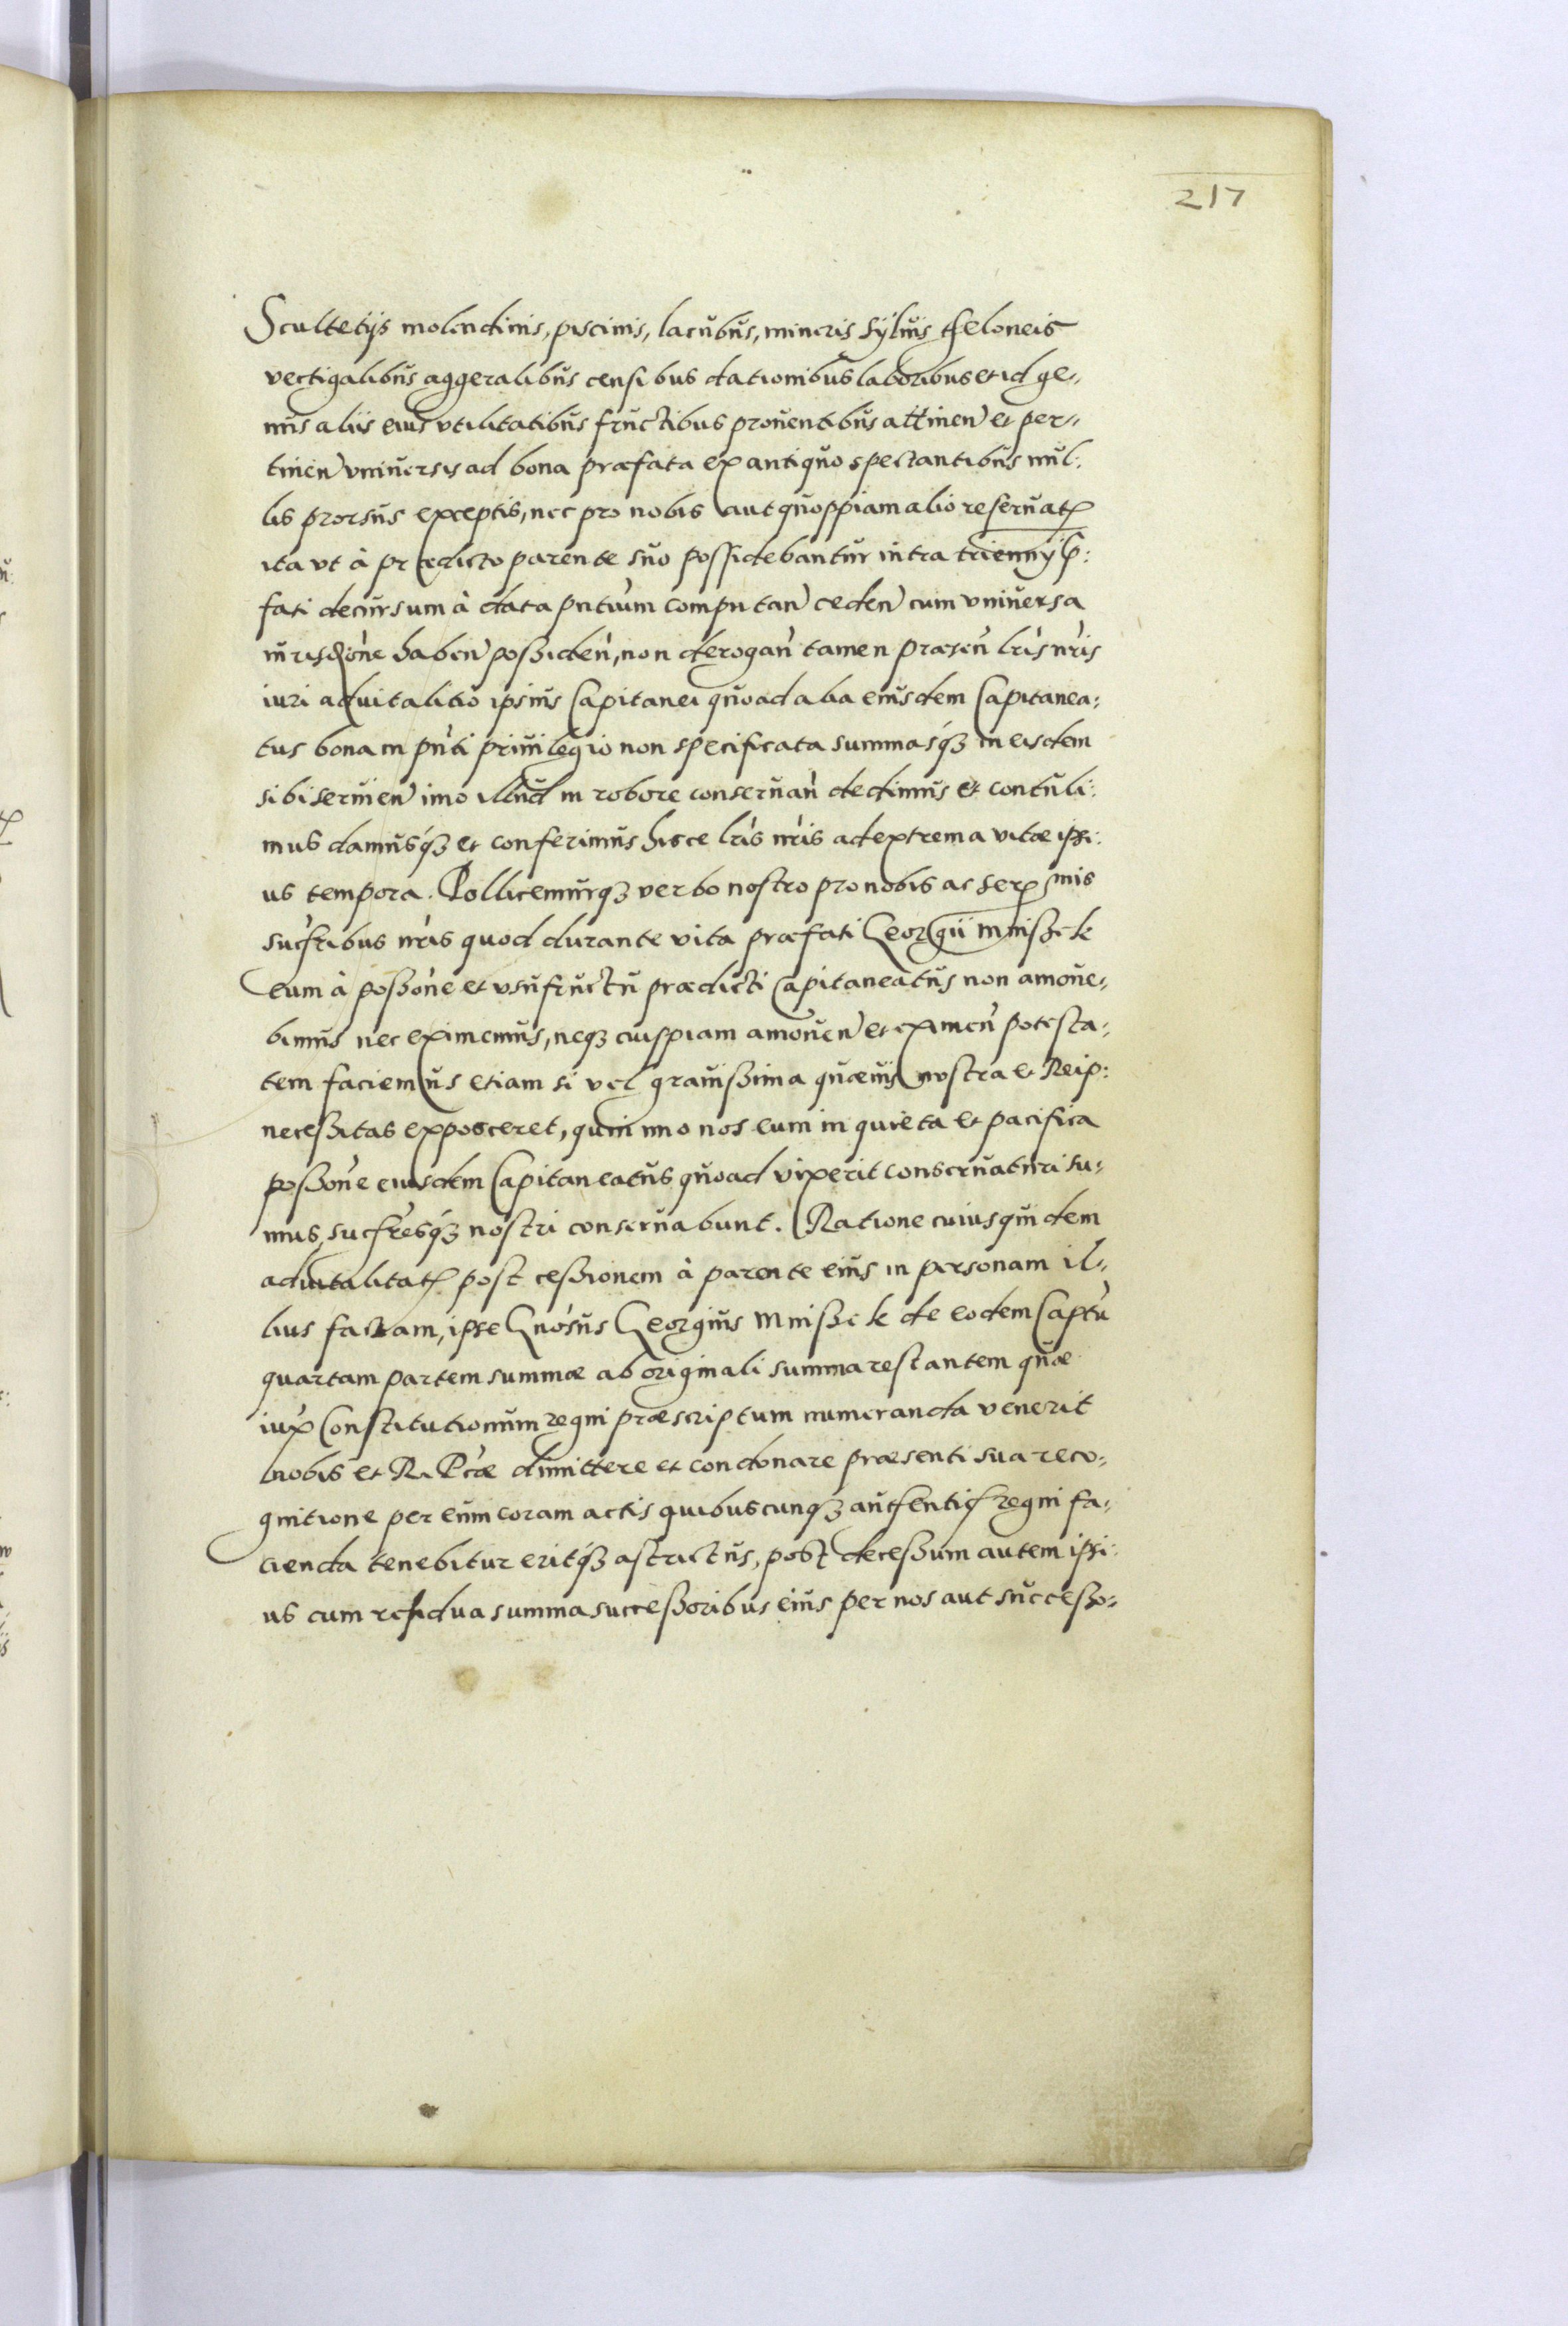 217
Scultetijs molendinis, piscinis, lacubus, mineris sÿluis theloneis
vectigalibus aggeralibus censibus dationibus laboribus et id ge,,
nus aliis eius vtilitatibus fructibus prouentibus attinen et per,,
tinen vniuersis ad bona præfata ex antiquo spectantibus nul:
lis prorsus exceptis, nec pro nobis aut quoppiam alio reseruat
ita vt à prædicto parente suo possidebantur intra triennij p:
fati decursum à data pntium computan ceden cum vniuersa
iurisdione haben possiden, non derogan tamen præsen lris nris
iuri aduitalitio ipsius Capitanei quoad alia eiusdem Capitanea:
tus bona in pnti priuilegio non specificata summasq3 in eisdem
sibi seruien imo illud in robore conseruan dedimus et contuli:
mus damusq3 et conferimus hisce lris nris ad extrema vitæ ipsi:
us tempora. Pollicemurq3 verbo nostro pro nobis ac Ser mis
sucribus nris quod durante vita præfati Georgii Mniszek
eum à possone et vsufructu prædicti Capitaneatus non amoue,,
bimus nec eximemus, neq3 cuispiam amouen et eximen potesta,,
tem faciemus etiam si vel grauissima quæuis nostra et Reip:
necessitas exposceret, quin imo nos eum in quieta et pacifica
possone eiusdem Capitaneatus quoad vixerit conseruaturi su,,
mus, sucresq3 nostri conseruabunt. Ratione cuiusquidem
aduitalitat post cessionem à parente eius in personam il,,
lius factam, ipse Gnosus Georgius Mniszek de eodem Captu
quartam partem summæ ab originali summa restantem quæ
iux Constitutionum regni præscriptum numeranda venerit
nobis et R. Pcæ dimittere et condonare præsenti sua reco,,
gnitione per eum coram actis quibuscunq3 authentic regni fa,,
cienda tenebitur eritq3 astrictus, post decessum autem ipsi:
us cum residua summa successoribus eius per nos aut successo,,